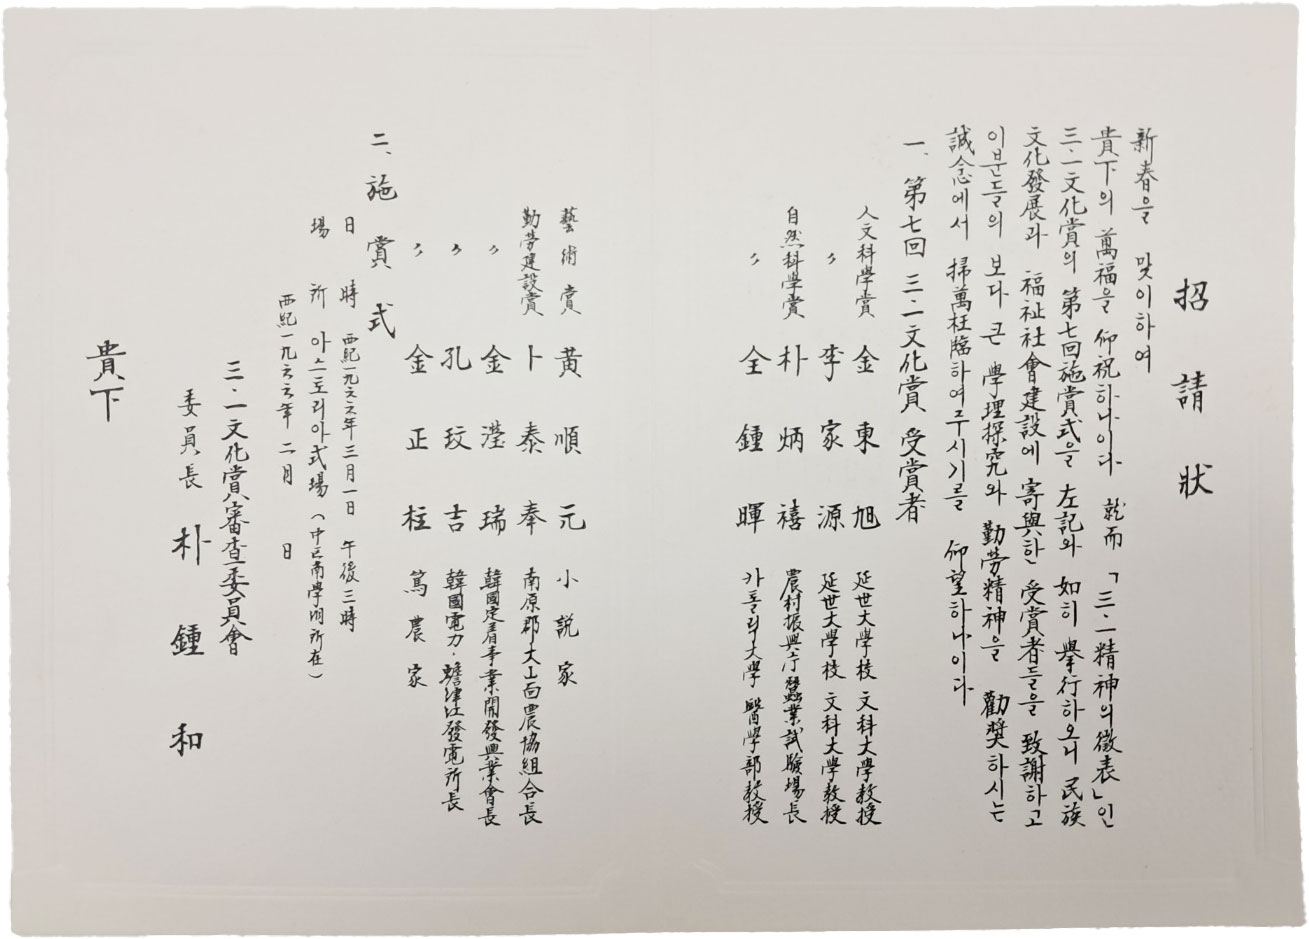 招請狀
新春을 맞이하여
貴下의 萬福을 仰祝하나이다 就而 「三·一精神의徵表」인
三·一文化賞의 第七回施賞式을 左記와 如히 擧行하오니 民族
文化發展과 福祉社會建設에 寄與한 受賞者들을 致謝하고
이분들의 보다 큰 學理探究와 勤勞精神을 勸奬하시는
誠念에서 掃萬枉臨하여주시기를 仰望하나이다
一、第七回 三·一文化賞 受賞者
人文科學賞 金東旭 延世大學校 文科大學敎授
〃 李家源 延世大學校 文科大學敎授
自然科學賞 朴炳禧 農村振興庁蠶業試驗場長
〃 全鍾暉 카톨릭大學 醫學部敎授
藝術賞 黃順元 小說家
勤勞建設賞 卜泰奉 南原郡大山面農協組合長
〃 金瀅瑞 韓國定着事業開發興業會長
〃 孔玟吉 韓國電力·蟾津江發電所長
〃 金正柱 篤農家
二、施賞式
日時 西紀一九六六年三月一日 午後三時
場所 아스토리아式場 (中区南學洞所在)
西紀一九六六年 二月 日
三·一文化賞審査委員會
委員長 朴鍾和
貴下